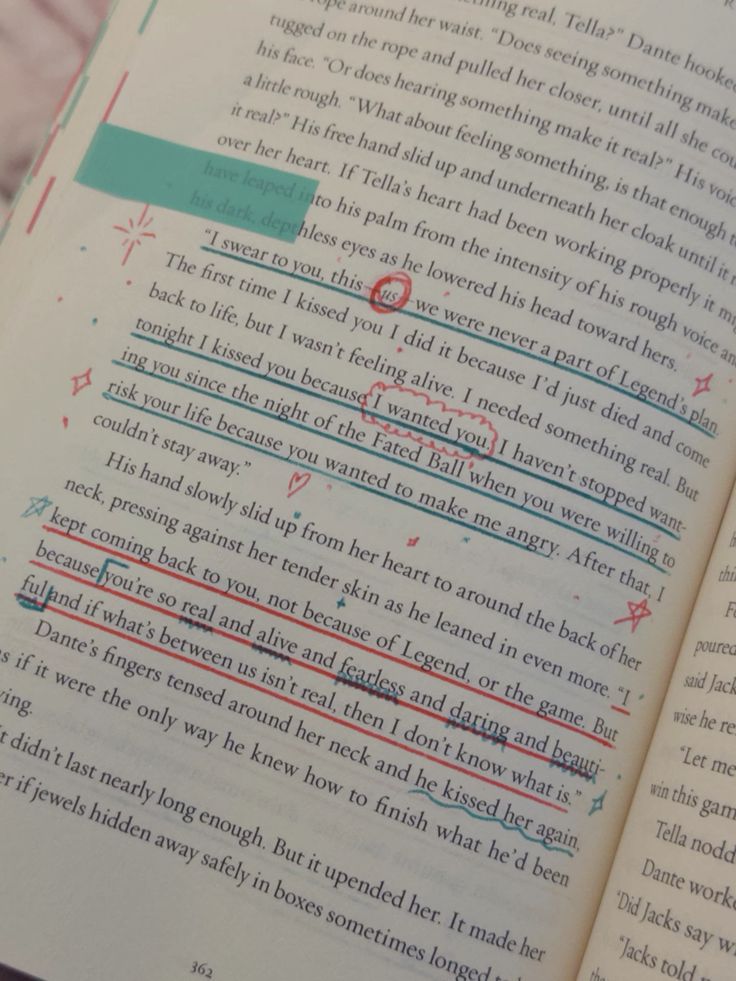 thing real, Tella?" Dante hooked
rope around her waist. "Does seeing something make
tugged on the rope and pulled her closer, until all she cou
his face. "Or does hearing something make it real?" His voic
a little rough. "What about feeling something, is that enough t
it real?" His free hand slid up and underneath her cloak until it r
over her heart. If Tella's heart had been working properly it mi
have leaped into his palm from the intensity of his rough voice an
his dark, depthless eyes as he lowered his head toward hers.
"I swear to you, this—us—we were never a part of Legend's plan.
The first time I kissed you I did it because I'd just died and come
back to life, but I wasn't feeling alive. I needed something real. But
tonight I kissed you because I wanted you. I haven't stopped want-
ing you since the night of the Fated Ball when you were willing to
risk your life because you wanted to make me angry. After that, I
couldn't stay away."
His hand slowly slid up from her heart to around the back of her
neck, pressing against her tender skin as he leaned in even more. "I
kept coming back to you, not because of Legend, or the game. But
because you're so real and alive and fearless and daring and beauti-
ful and if what's between us isn't real, then I don't know what is."
Dante's fingers tensed around her neck and he kissed her again,
as if it were the only way he knew how to finish what he'd been
ying.
It didn't last nearly long enough. But it upended her. It made her
er if jewels hidden away safely in boxes sometimes longed
362
thi
poured
said Jack
wise he re
"Let me
win this gam
Tella nodd
Dante work
"Did Jacks say w
"Jacks told
the